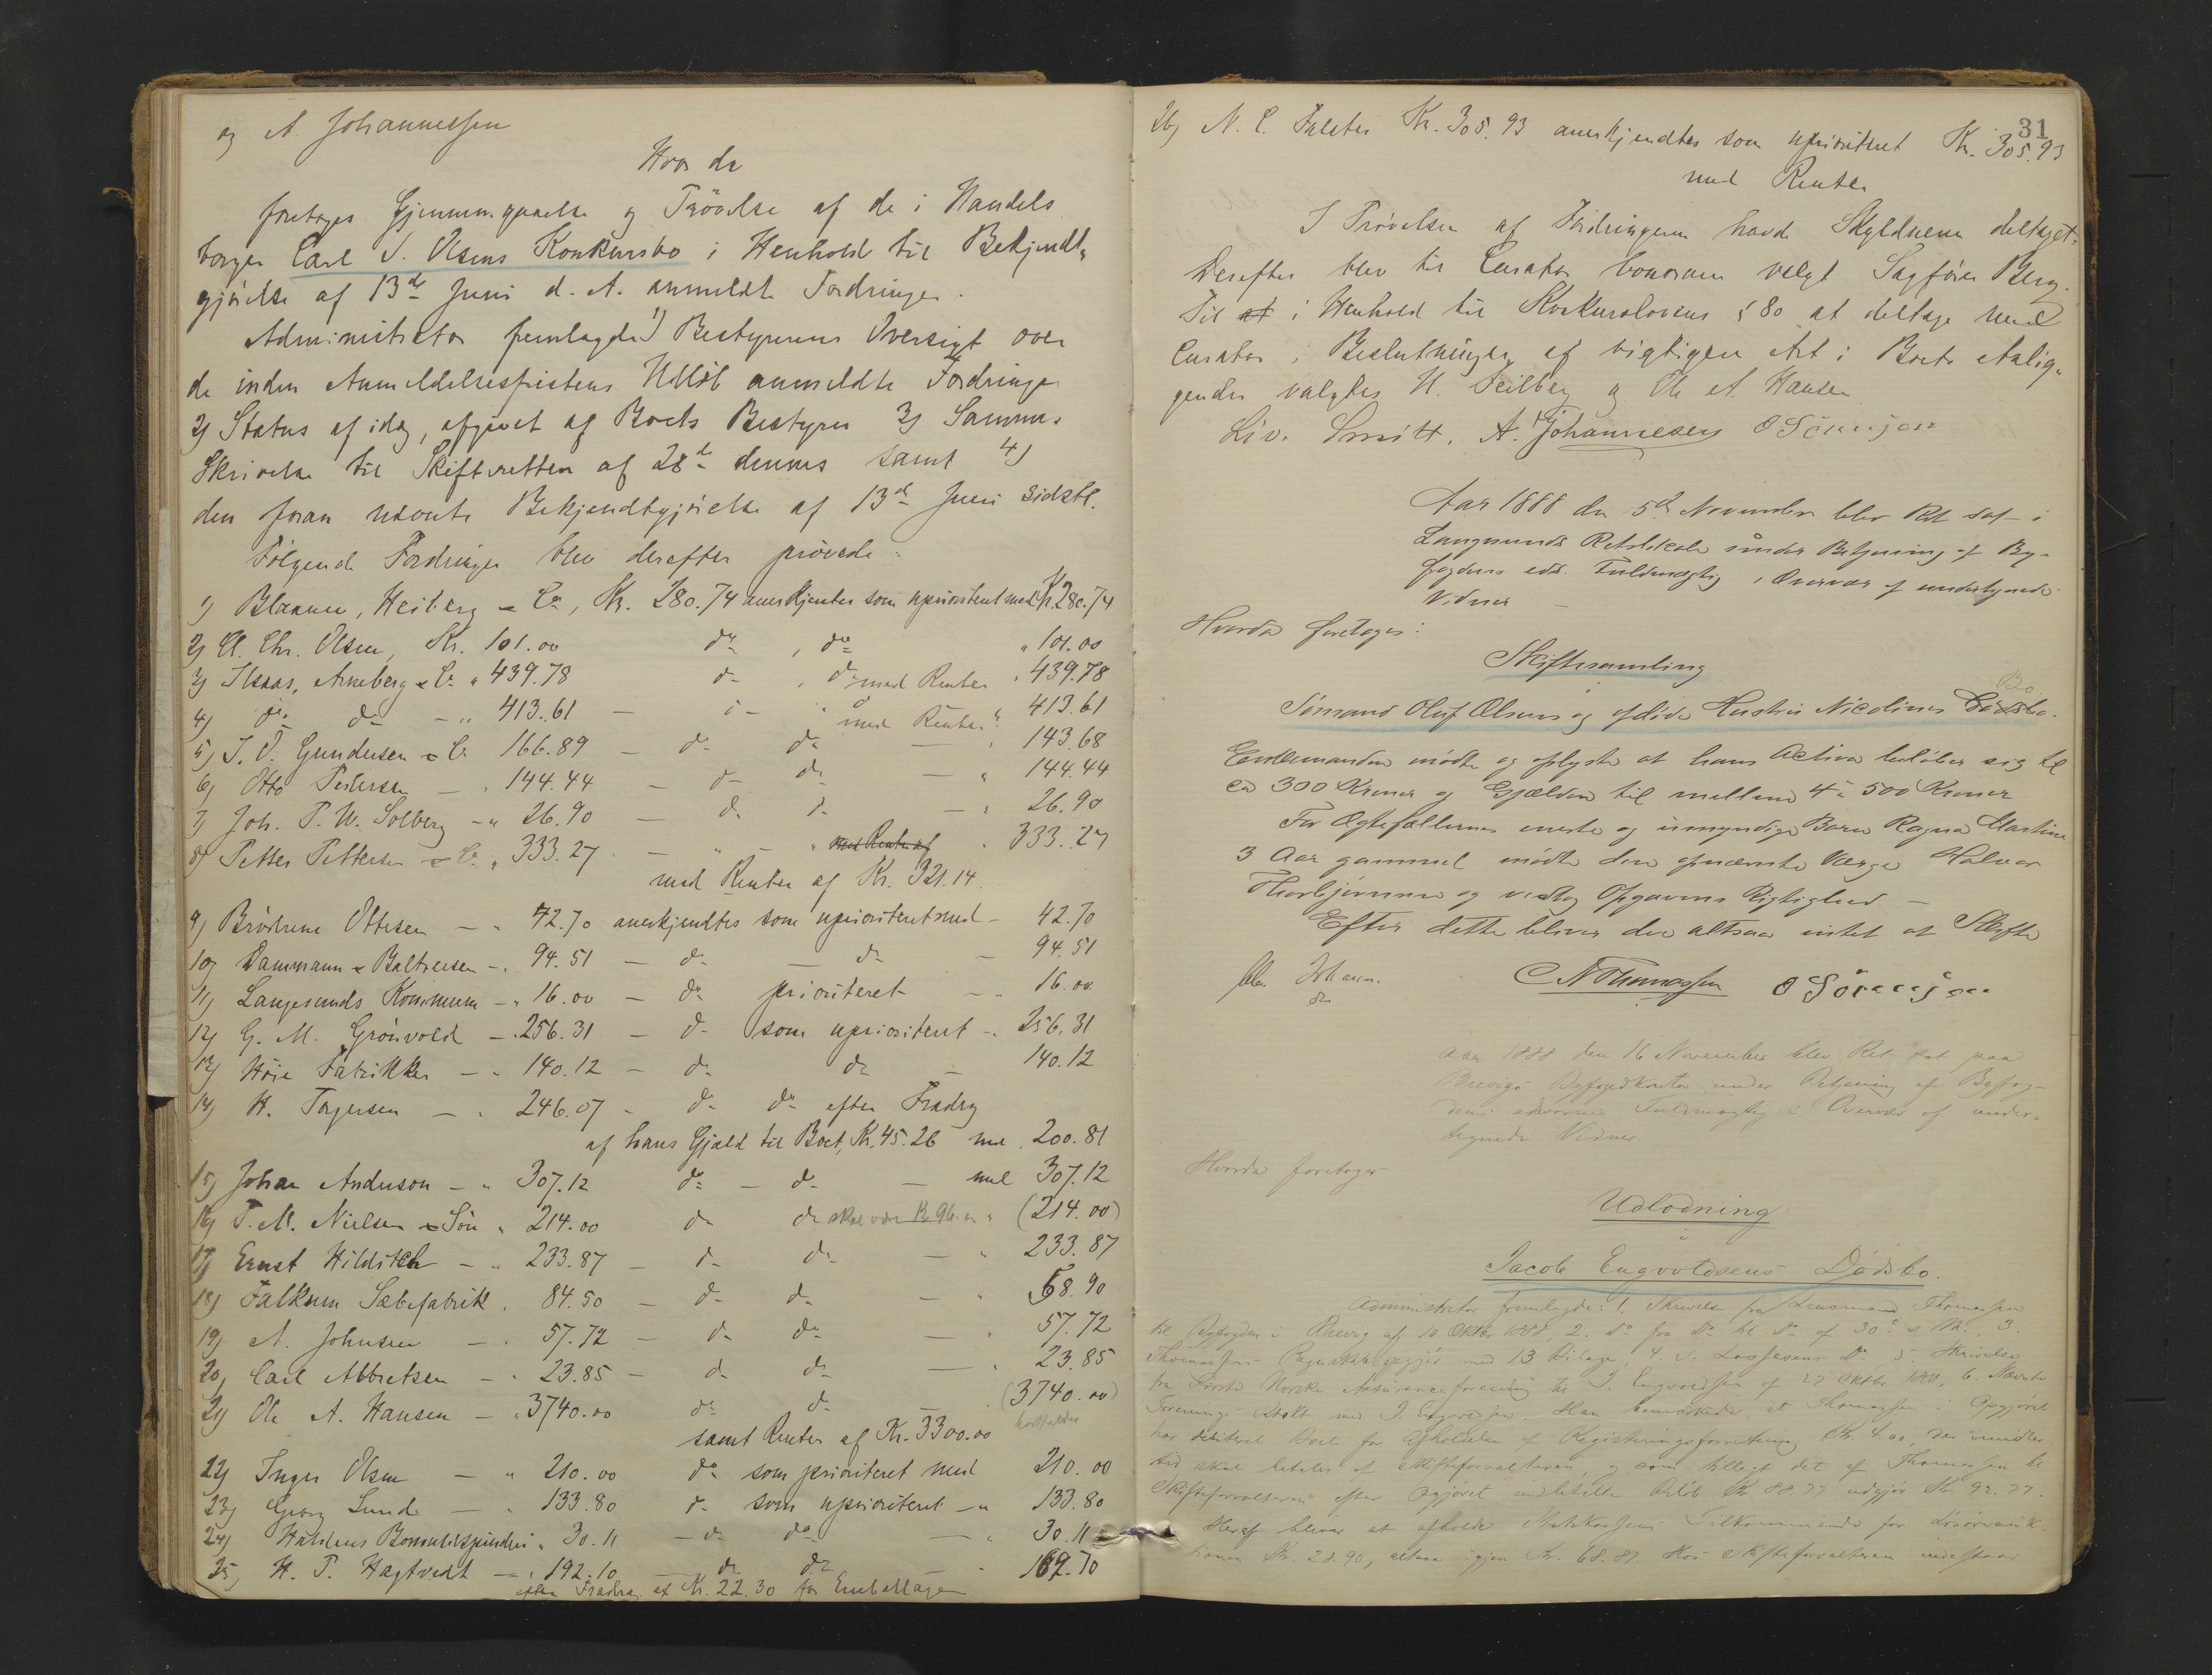 og A. Johannessen
Hvor da
foretoges Gjennemgaaelse og Prövelse af de i Handels
borger Carl S. Olsens Konkursbo i Henhold til Bekjendt„
gjörelse af 13de Juni d. A. anmeldte Fordringer.
Administrator fremlagde 1) Bestyrerens Oversigt over
de inden Anmeldelsesfristens Udlöb anmeldte Fordringer
2) Status af idag, afgivet af Boets Bestyrer 3) Sammes
Skrivelse til Skifteretten af 28de dennes samt 4)
den foran nævnte Bekjendtgjörelse af 13de Juni sidstl.
Fölgende Fordringer blev derefter prövede:
1) Heiberg & Co, Kr. 280.74 anerkjentes som uprioritert med Kr. 280.74
2) Chr. Olsen, Kr. 101.00 do , do " 101.00
3) Arneberg & Co " 439.78 do , do med Renter " 439.78
4) do do - " 413.61 — do — " med Renter " 413.61
5) Gundersen & Co 166.89 — do do — " 143.68
6) Otto Pedersen — " 144.44 — do do — " 144.44
7) Joh. P. W. Solberg - " 26.90 — do do — " 26.90
8) Petter Pettersen & Co. " 333.27 — " — " med Renter af " 333.27
med Renter af Kr. 321.14.
9) Brödrene Ottesen — " 42.70 anerkjendtes som uprioriteret med - 42.70
10) Dammann & Baltzersen - " 94.51 — do — do — 94.51
11) Langesunds Kommune - " 16.00 — do prioriteret - " 16.00
12) G. M. Grönvold - " 256.31 — do som uprioriteret - " 256.31
13) Höie Fabrikker — " 140.12 — do do — 140.12
14) H. Torgersen — " 246.07 - do do efter Fradrag
af hans Gjæld til Boet, Kr. 45.26 med " 200.81
15) Johan Anderson — " 307.12 do — do — med 307.12
16) Nielsen & Sön " 214.00 do do skal være Kr. 96. " (214.00)
17) Ernst Hilditch — " 233.87 — do do — " 233.87
18) Falkum Sæbefabrik " 84.50 — do do — " 68.90
19) A. Johnsen — " 57.72 — do do — " 57.72
20) Carl Abbretsen — " 23.85 — do do — " 23.85
21) Ole A. Hansen — " 3740.00 do do — " (3740.00)
samt Renter af Kr. 3300.00 bortfalder
22) Inger Olsen — " 210.00 do som prioriteret med 210.00
23) Georg Lunde — " 133.80 do som uprioriteret - " 133.80
24) Haldens Bomuldspinderi " 30.11 — do do — " 30.11
25) H. P. Hagtvedt — " 192.10 — do do — " 169.70
efter Fradrag af Kr. 22.30 for Emballage
31
26) N. C. Kr. 305.93 anerkjendtes som uprioriteret Kr. 305.93
med Renter
I Prövelsen af Fordringerne havde Skyldneren deltaget.
Derefter blev til Curator bonorum valgt Sagförer Berg.
Til at i Henhold til Konkurslovens § 80 at deltage med
Curator i Beslutninger af vigtigere Art i Boets Anlig„
gender valgtes H. Feilberg og Ole A. Hansen
Liv. Smitt. A. Johannesen O Sörensen
Aar 1888 den 5te November blev Ret sat i
Langesunds Retslokale under Betjening af By-
fogdens eds. Fuldmægtig i Overvær af undertegnede
Vidner —
Hvorda foretoges:
Skiftesamling
i
Sömand Oluf Olsens og afdöde Hustru Nicolines Bo.
Enkemanden mödte og oplyste at hans Activa belöber sig til
ca 300 Kroner og Gjælden til mellem 4 à 500 Kroner
For Ægtefællernes eneste og umyndige Barn Ragna Martine
3 Aar gammel mödte den opnævnte Værge Halvor
Thorbjörnsen og vedtog Opgavens Rigtighed —
Efter dette bliver der altsaa intet at Skifte
N Thomassen O Sörensen
Aar 1888 den 16 November blev Ret sat paa
Brevigs Byfogedkontor under Betjening af Byfog-
dens edsvorne Fuldmægtig i Overvær af under-
tegnede Vidner
Hvorda foretoges
Udlodning
i
Jacob Engvoldsens Dödsbo.
Administrator fremlagde: 1. Skrivelse fra Lensmand Thomassen
til Byfogden i Brevig af 10 Oktbr 1888, 2. Do fra Do til Do af 30te s. M., 3.
Thomassens Regnskabsopgjör med 13 Bilage, 4. Do 5. Skrivelse
fra Förste Norske Assuranceforening til J. Engvoldsen af 27 Oktbr 1880, 6. Nævnte
Forenings med J. Engvoldsen. Han bemærkede, at Thomassen i Opgjöret
har debiteret Boet for Afholdelse af Registreringsforretning Kr. 4.00, der imidler-
tid skal betales af Skifteforvalteren, og som tillagt det af Thomassen til
Skifteforvalteren efter Opgjöret indbetalte Belöb Kr 88.77 udgjör Kr. 92.77.
Heraf bliver at afholde Statskassens Tilkommende for Lösöreauk-
tionen Kr. 23.90, altsaa igjen Kr. 68.87. Hos Skifteforvalteren indestaar